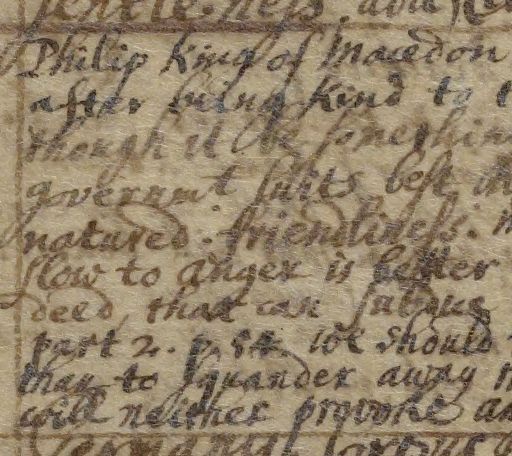 gentle-ness. and
Philip King of Macedon
after being kind to
though it be somethin
governmt suits best
natured. friendliness.
slow to anger is better
deed, that can subdue
part 2. p. 54. we should
than to squander away
will neither provoke an